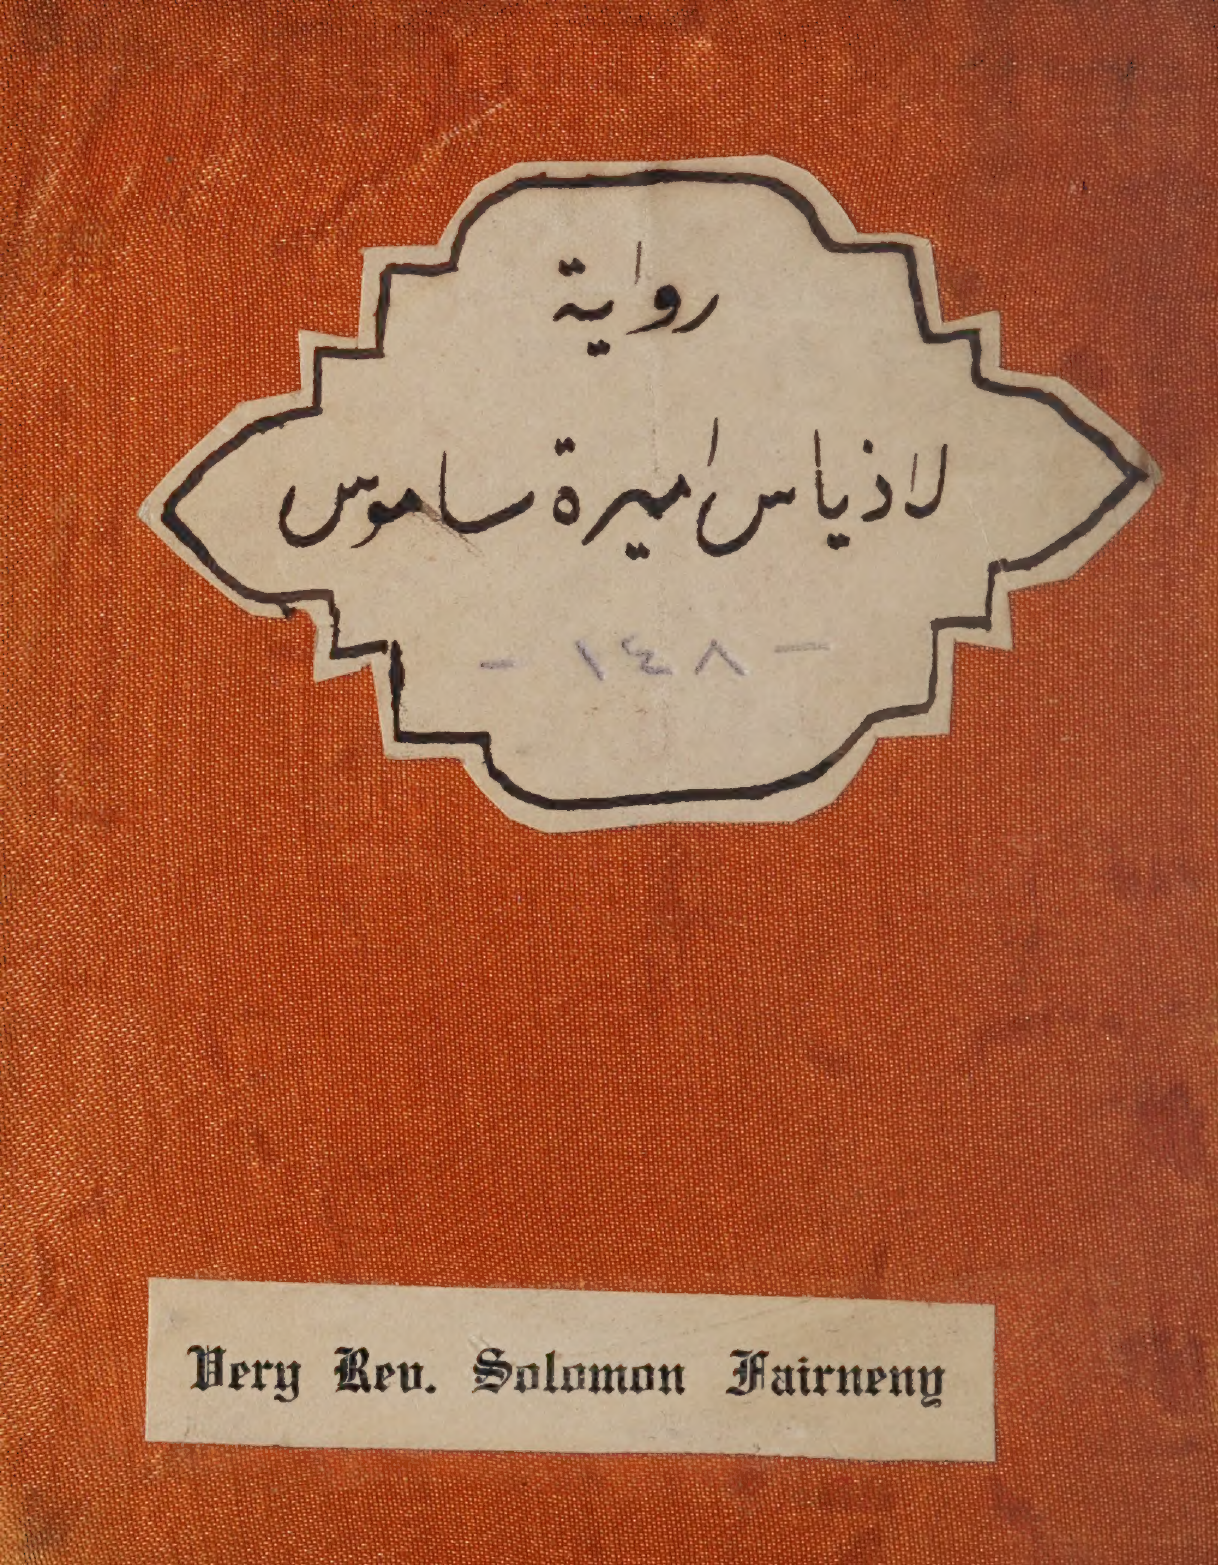 رواية
لاذياس اميرة ساموس
- ١٤٨ -
Very Rev. Solomon Fairneny